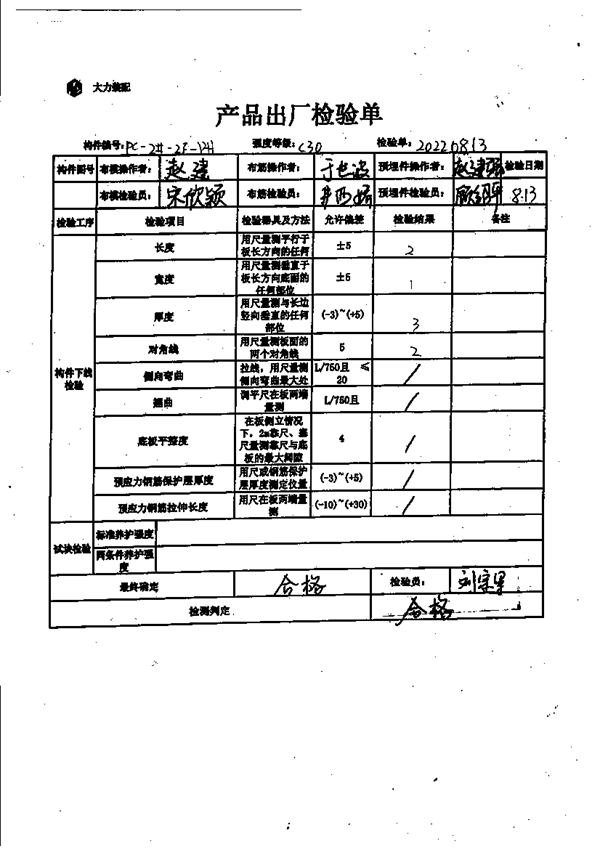 大力装配
产品出厂检验单
构件编号：PC-2#-2F-YZH 强度等级：C30 检验单：20220813
构件图号 布模操作者： 赵建 布筋操作者： 预埋件操作者： 赵建强 检验日期
布模检验员： 宋欣颖 布筋检验员： 预埋件检验员： 8.13
检验工序 检验项目 检验器具及方法 允许偏差 检验结果 备注
构件下线检验
长度 用尺量测平行于板长方向的任何 ±5 2
宽度 用尺量测垂直于板长方向底面的任何部位 ±5 1
厚度 用尺量测与长边竖向垂直的任何部位 (-3)~(+5) 3
对角线 用尺量测板面的两个对角线 5 2
侧向弯曲 拉线，用尺量测侧向弯曲最大处 L/750且 ≤20 /
翘曲 调平尺在板两端量测 L/750且 /
底板平整度 在板侧立情况下，2m靠尺、塞尺量测靠尺与底板的最大间隙 4 /
预应力钢筋保护层厚度 用尺或钢筋保护层厚度测定仪量 (-3)~(+5) /
预应力钢筋拉伸长度 用尺在板两端量测 (-10)~(+30) /
试块检验 标准养护强度
同条件养护强度
最终确定 合格 检验员：
检测判定 合格